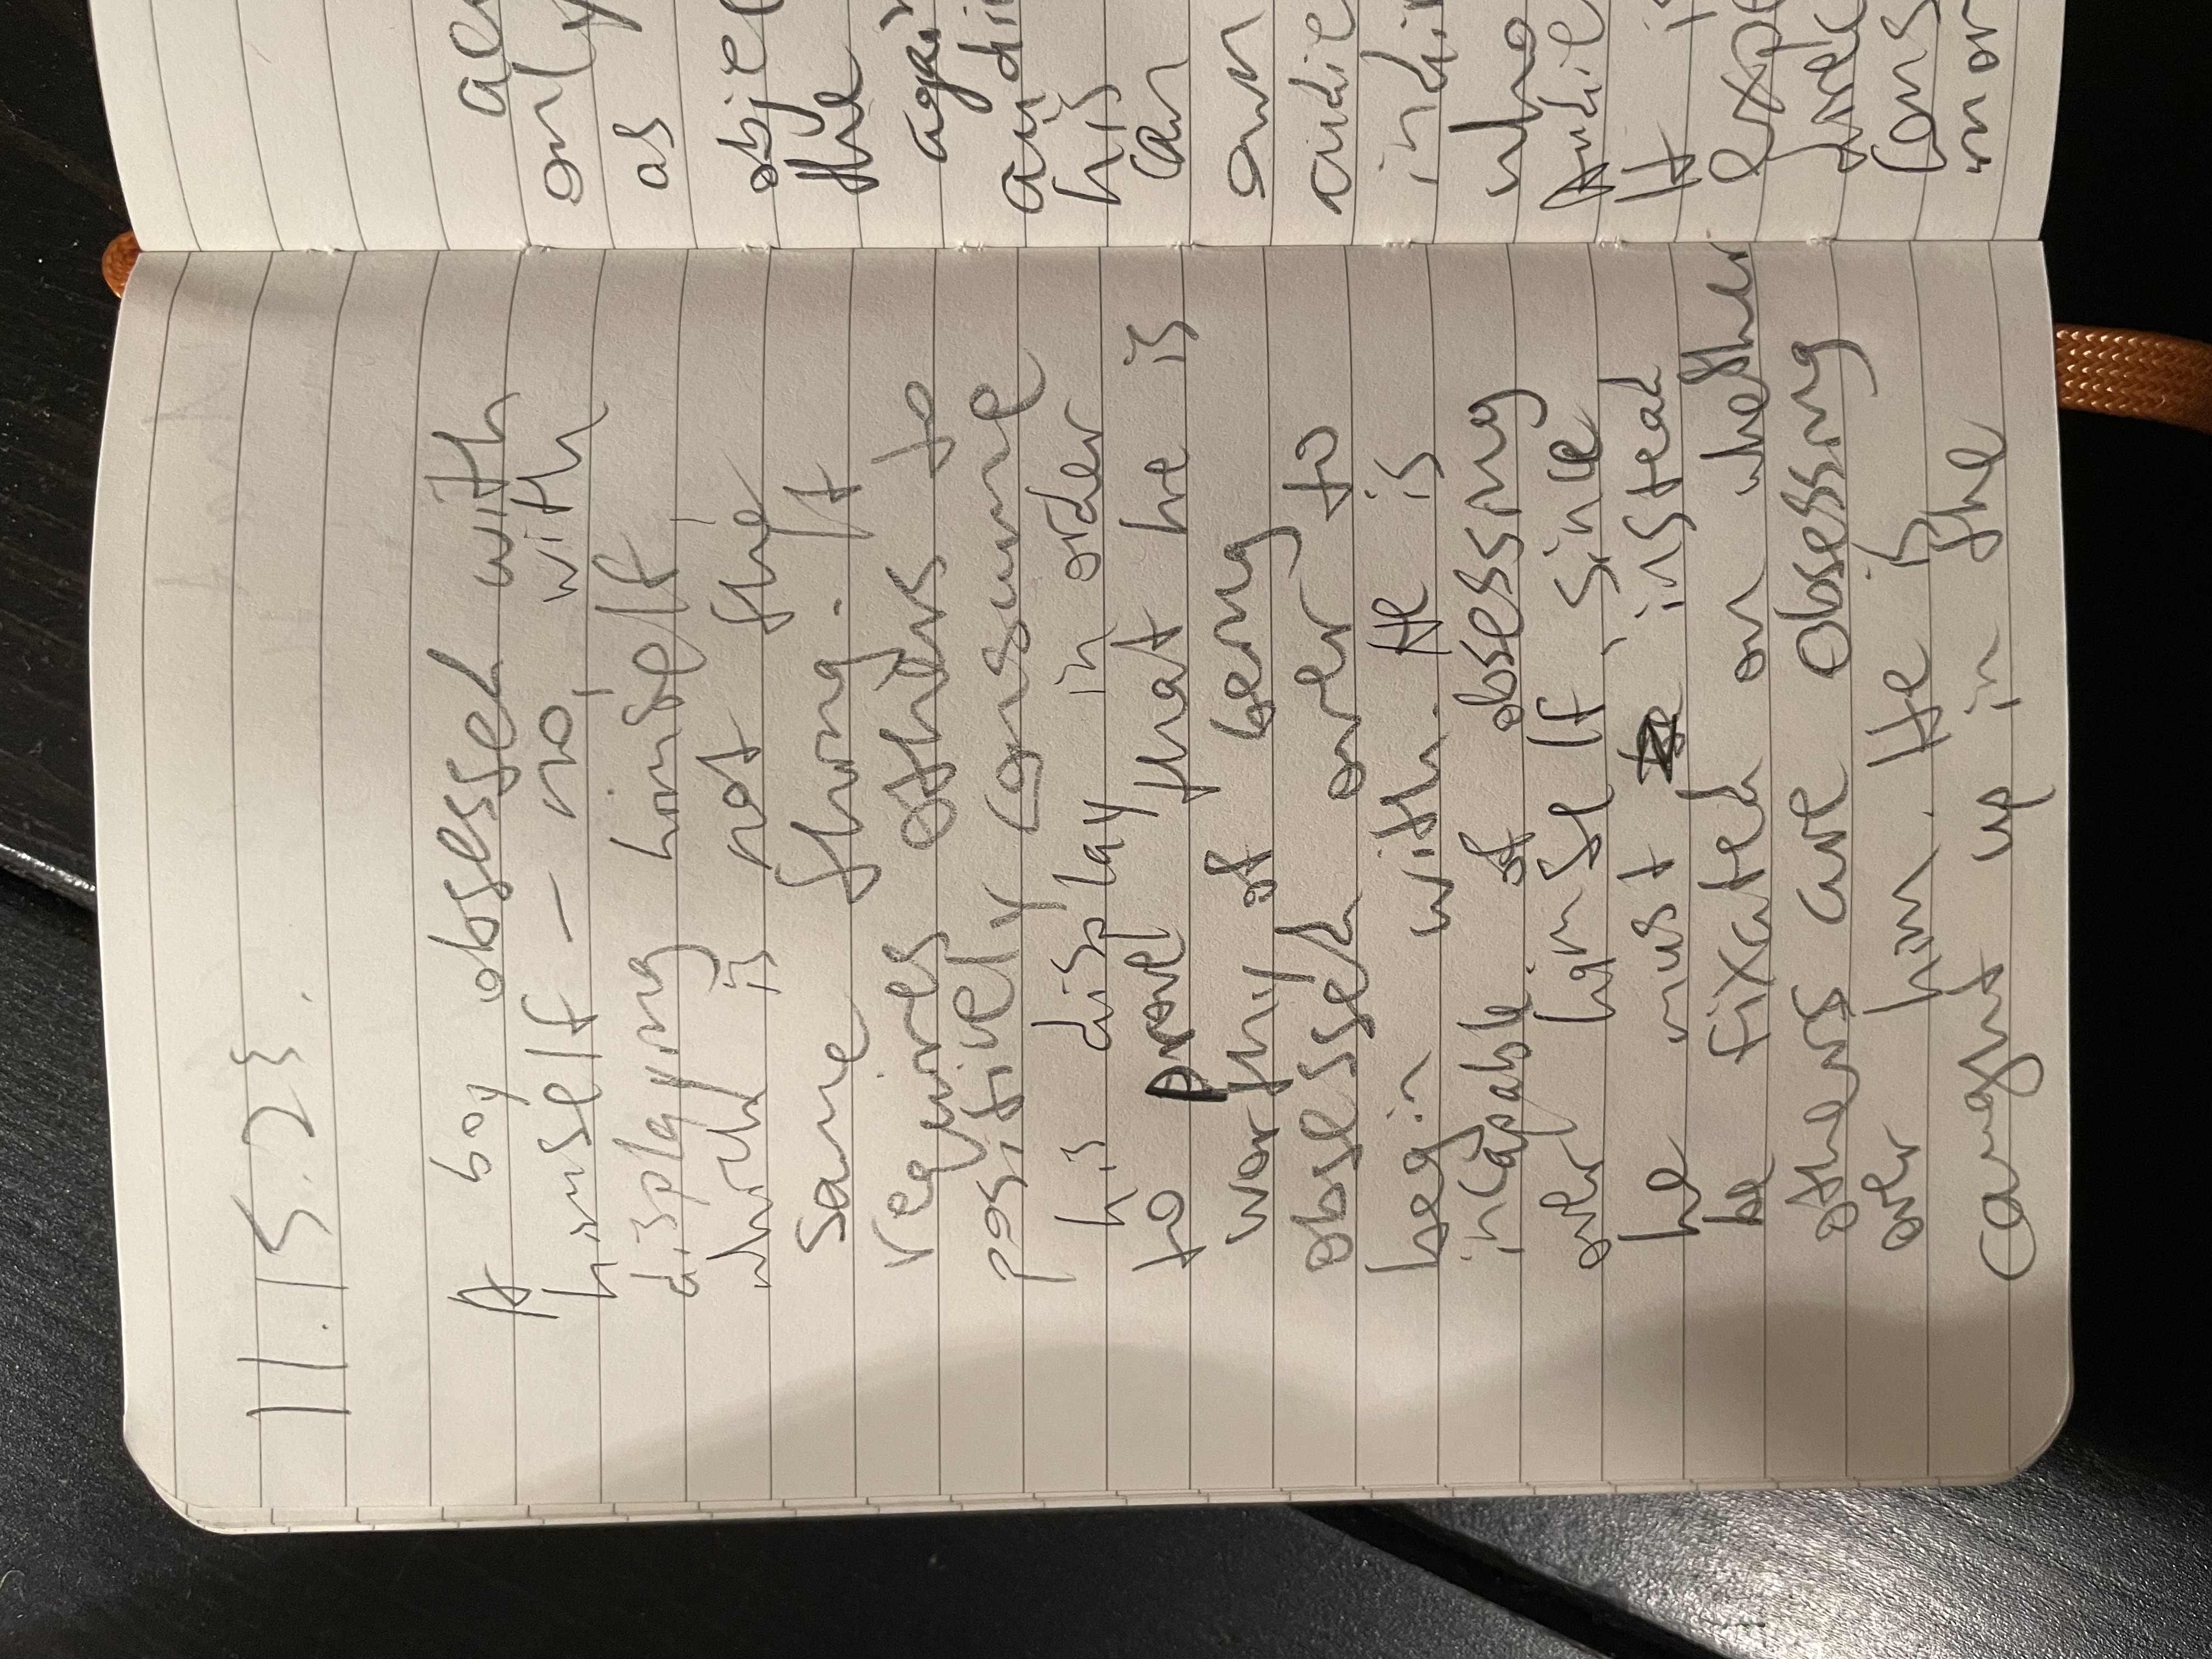 11.15.23.
A boy obsessed with
himself – no, with
displaying himself,
which is not the
same thing. It
requires others to
positively consume
his display in order
to prove that he is
worthy of being
obsessed over to
begin with. He is
incapable of obsessing
over himself, since
he must instead
be fixated on whether
others are obsessing
over him. He is
caught up in the
only
as
the
his
can
own
who
It